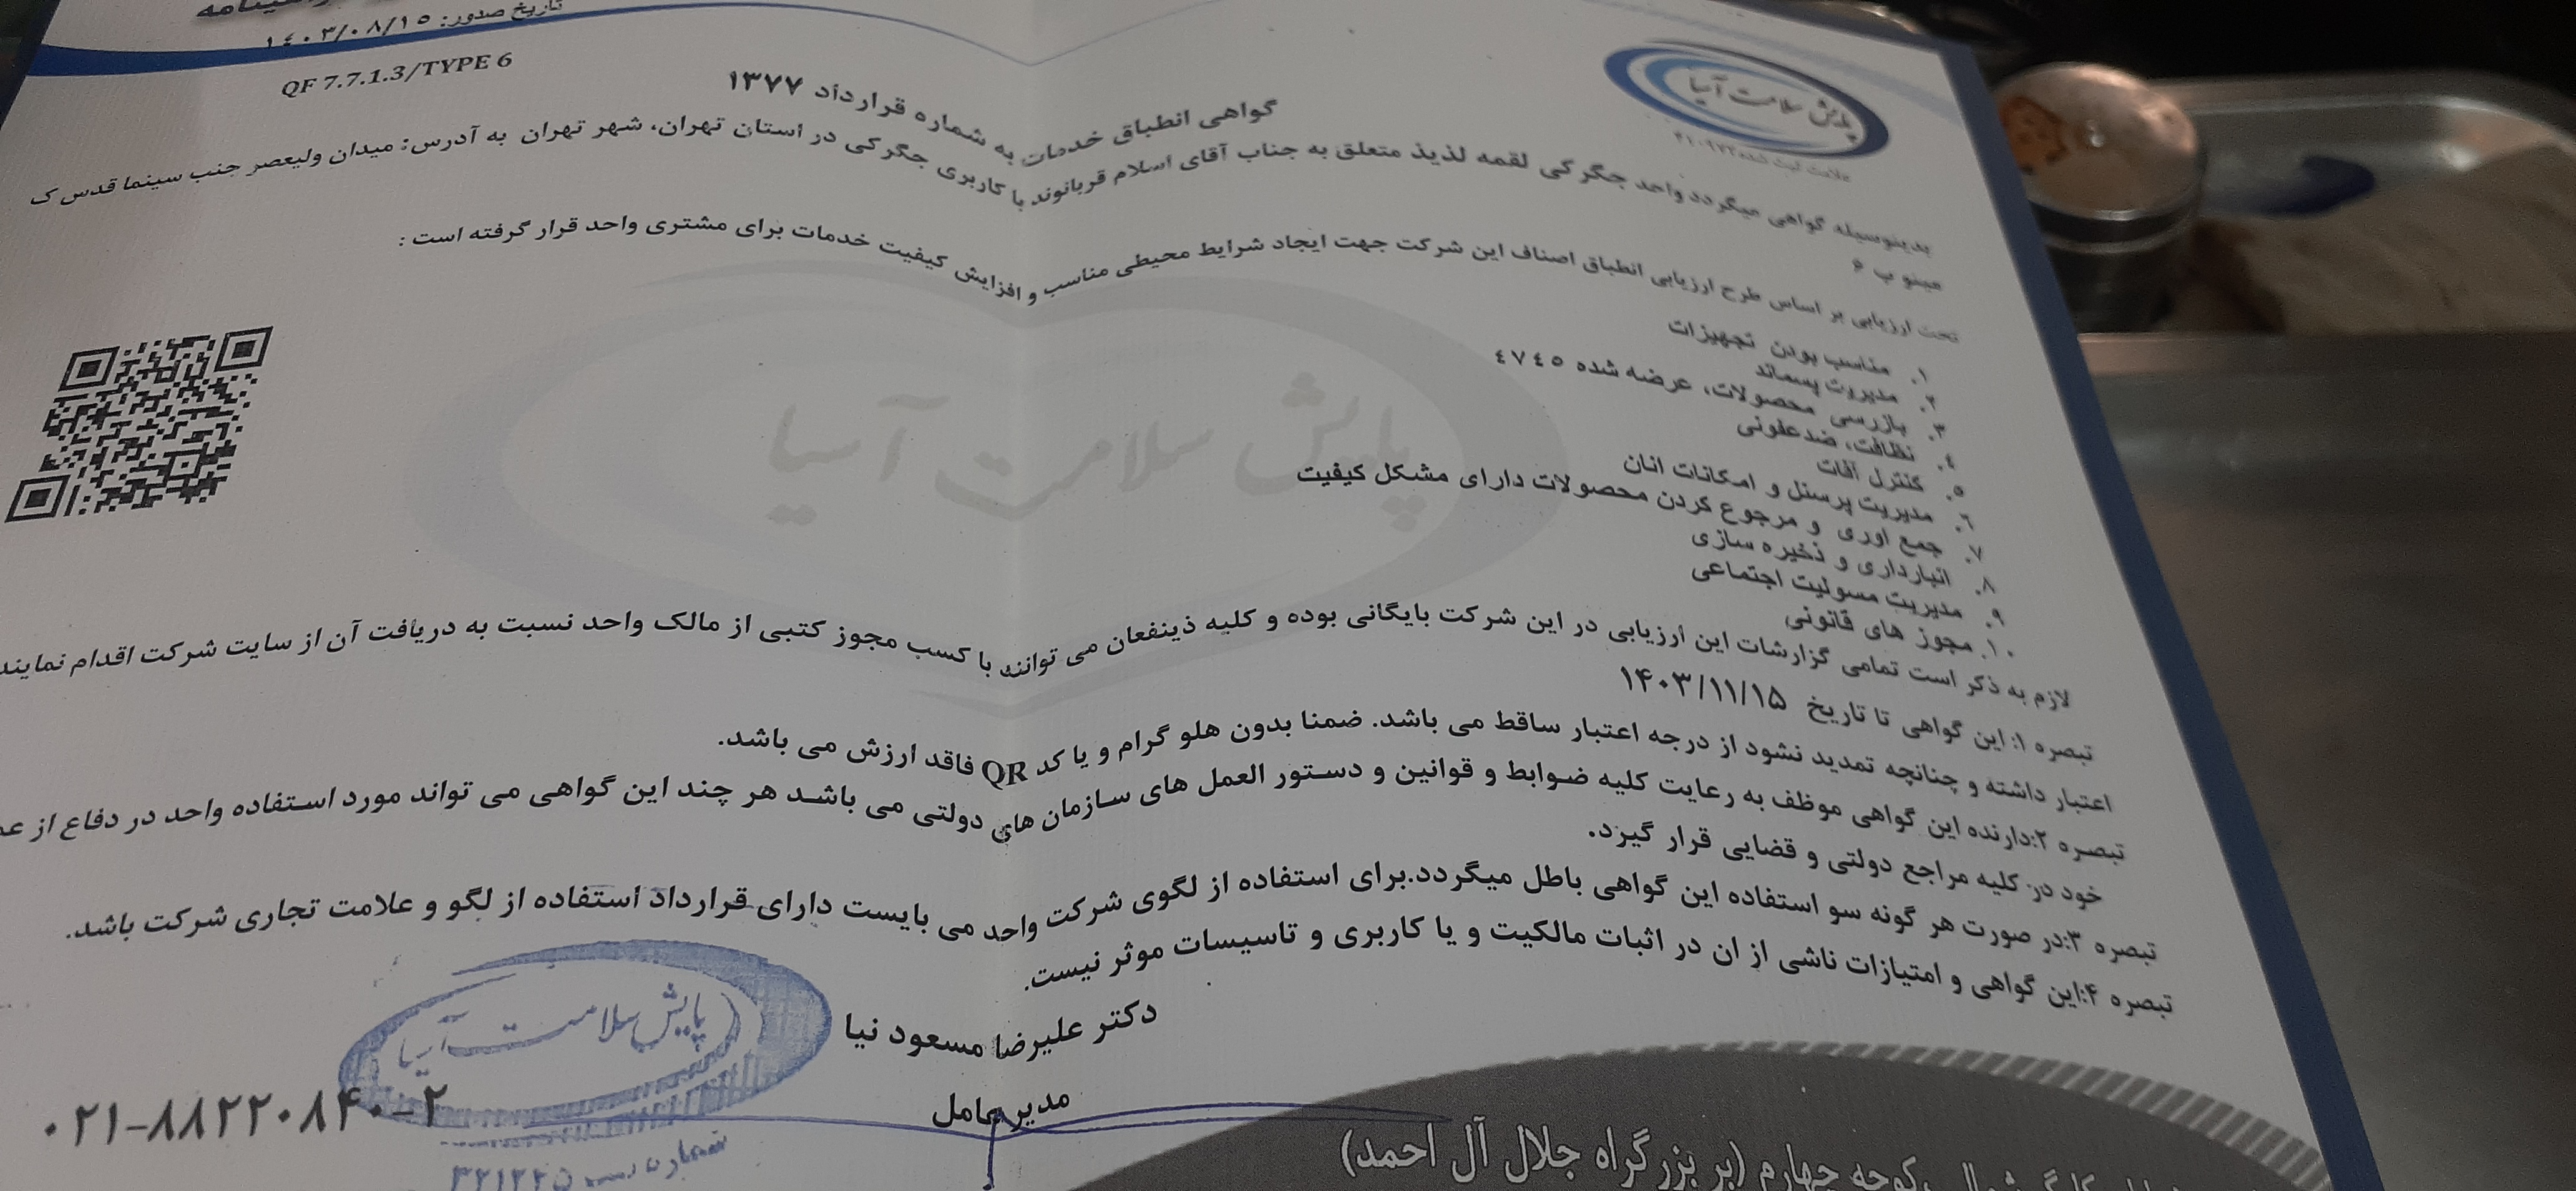 تاریخ صدور: ۱۴۰۳/۰۸/۱۵
QF 7.7.1.3/TYPE 6
پایش سلامت آسیا
گواهی انطباق خدمات به شماره قرارداد ۱۳۷۷
بدینوسیله گواهی میگردد واحد جگرکی لقمه لذیذ متعلق به جناب آقای اسلام قربانوند با کاربری جگرکی در استان تهران، شهر تهران به آدرس: میدان ولیعصر جنب سینما قدس ک
مینو پ ۶
تحت ارزیابی بر اساس طرح ارزیابی انطباق اصناف این شرکت جهت ایجاد شرایط محیطی مناسب و افزایش کیفیت خدمات برای مشتری واحد قرار گرفته است :
۱. مناسب بودن تجهیزات
۲. مدیریت پسماند
۳. بازرسی محصولات، عرضه شده ٤٧٤٥
۴. نظافت، ضدعفونی
۵. کنترل آفات
۶. مدیریت پرسنل و امکانات انان
۷. جمع اوری و مرجوع کردن محصولات دارای مشکل کیفیت
۸. انبارداری و ذخیره سازی
۹. مدیریت مسولیت اجتماعی
۱۰. مجوز های قانونی
پایش سلامت آسیا
لازم به ذکر است تمامی گزارشات این ارزیابی در این شرکت بایگانی بوده و کلیه ذینفعان می توانند با کسب مجوز کتبی از مالک واحد نسبت به دریافت آن از سایت شرکت اقدام نمایند
تبصره ۱: این گواهی تا تاریخ ۱۴۰۳/۱۱/۱۵
اعتبار داشته و چنانچه تمدید نشود از درجه اعتبار ساقط می باشد. ضمنا بدون هلو گرام و یا کد QR فاقد ارزش می باشد.
تبصره ۲:دارنده این گواهی موظف به رعایت کلیه ضوابط و قوانین و دستور العمل های سازمان های دولتی می باشد هر چند این گواهی می تواند مورد استفاده واحد در دفاع از عم
خود در کلیه مراجع دولتی و قضایی قرار گیزد.
تبصره ۳:در صورت هر گونه سو استفاده این گواهی باطل میگردد.برای استفاده از لگوی شرکت واحد می بایست دارای قرارداد استفاده از لگو و علامت تجاری شرکت باشد.
تبصره ۴:این گواهی و امتیازات ناشی از ان در اثبات مالکیت و یا کاربری و تاسیسات موثر نیست.
دکتر علیرضا مسعود نیا
مدیرعامل
پایش سلامت آسیا
۰۲۱-۸۸۲۲۰۸۴۰-۲
کوچه چهارم (بر بزرگراه جلال آل احمد)